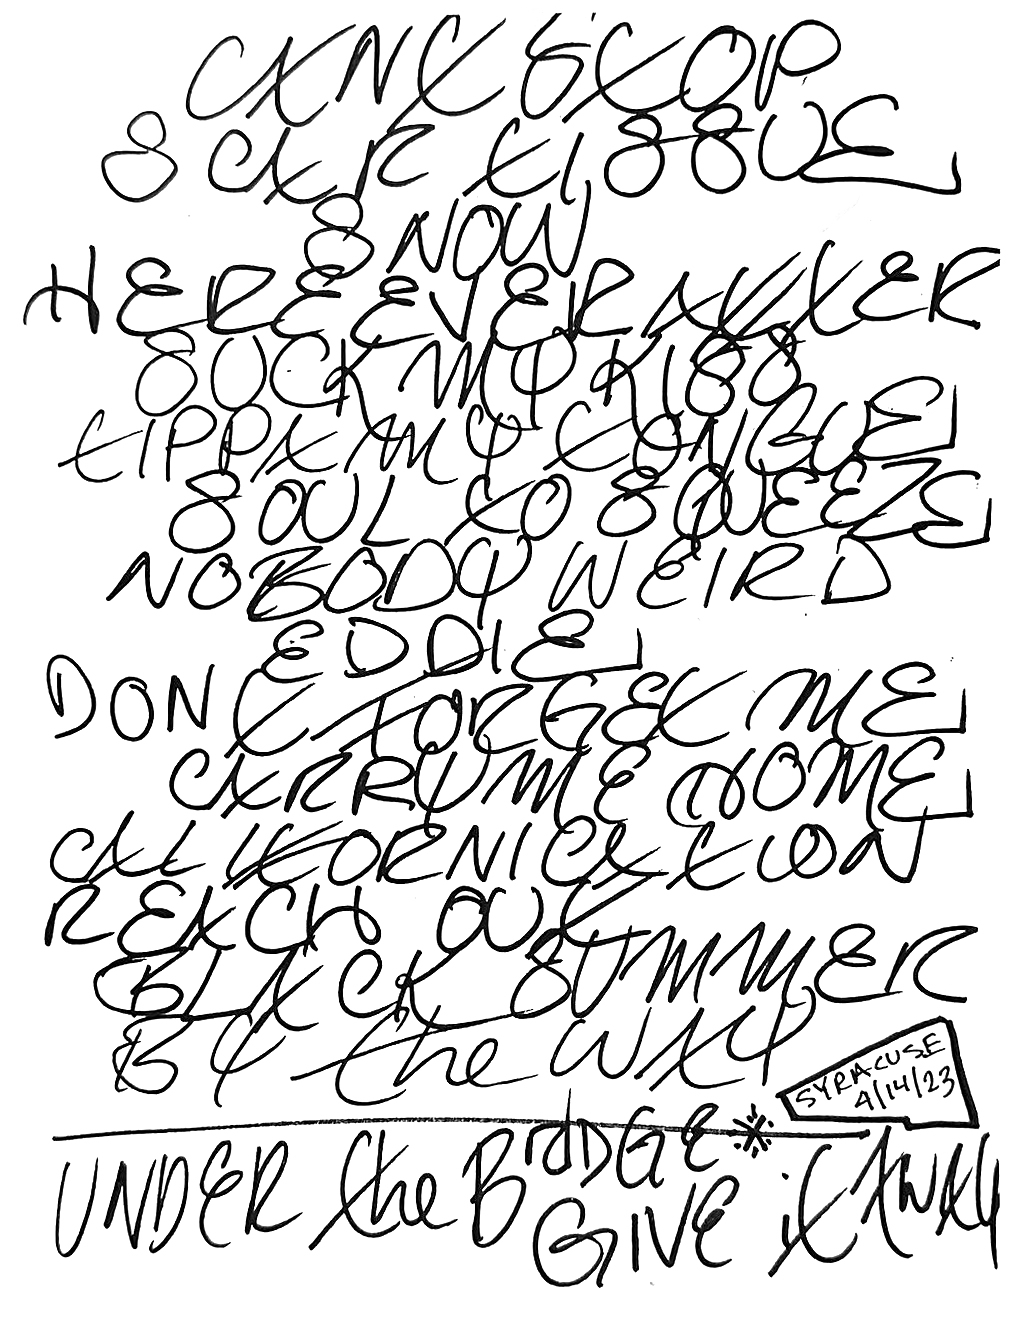 CANT STOP
SCAR TISSUE
SNOW
HERE EVER AFTER
SUCK MY KISS
TIPPA MY TONGUE
SOUL TO SQUEEZE
NOBODY WEIRD
EDDIE
DONT FORGET ME
CARRY ME HOME
CALIFORNICATION
REACH OUT
BLACK SUMMER
BY the WAY
SYRACUSE
4/14/23
UNDER the BRIDGE *
GIVE it AWAY